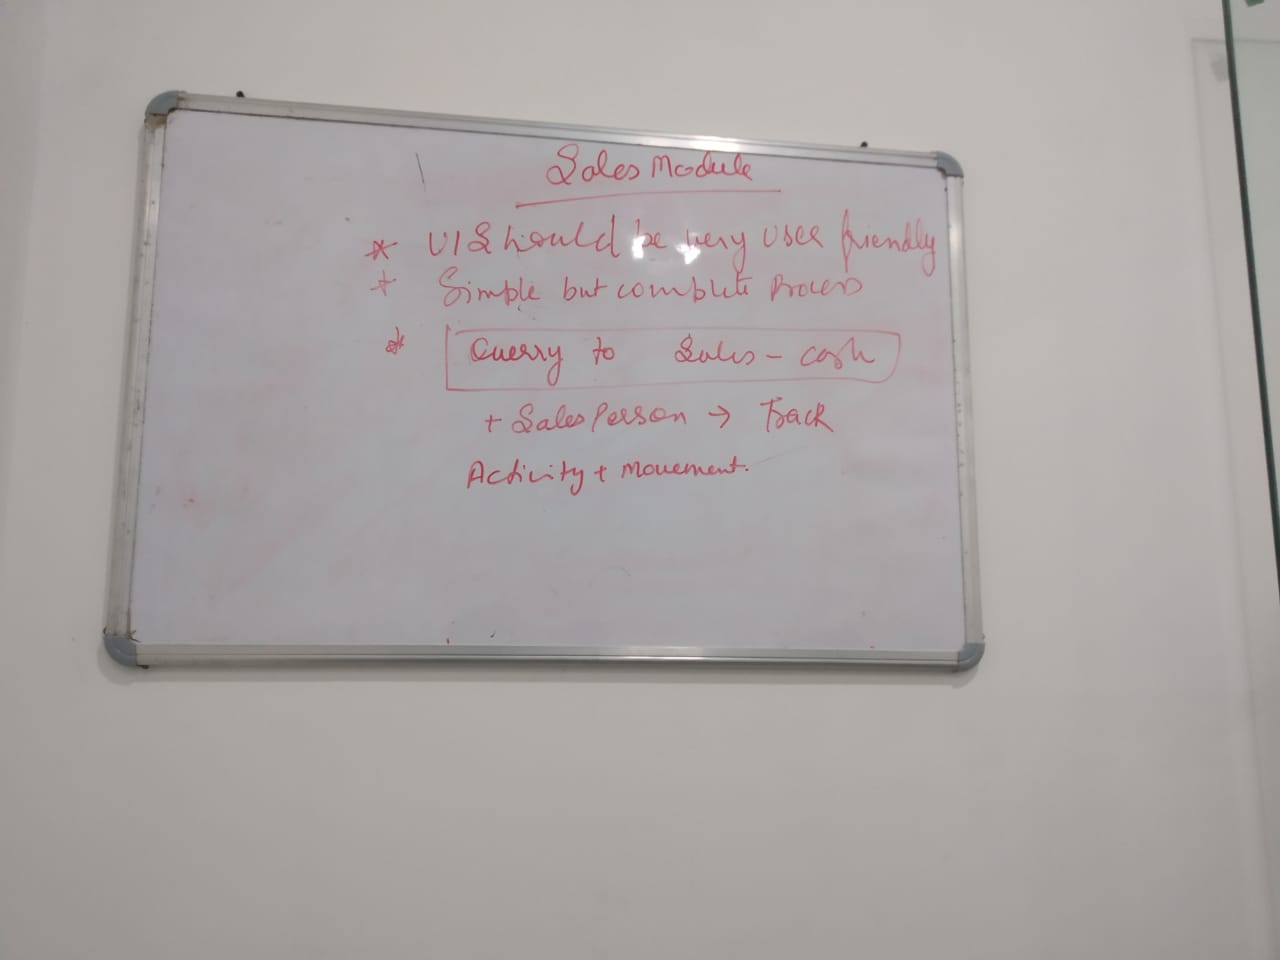 Sales Module
* UI Should be very user friendly
* Simple but complete Process
* Querry to Sales - cash
+ Sales Person → Track
Activity + Movement.